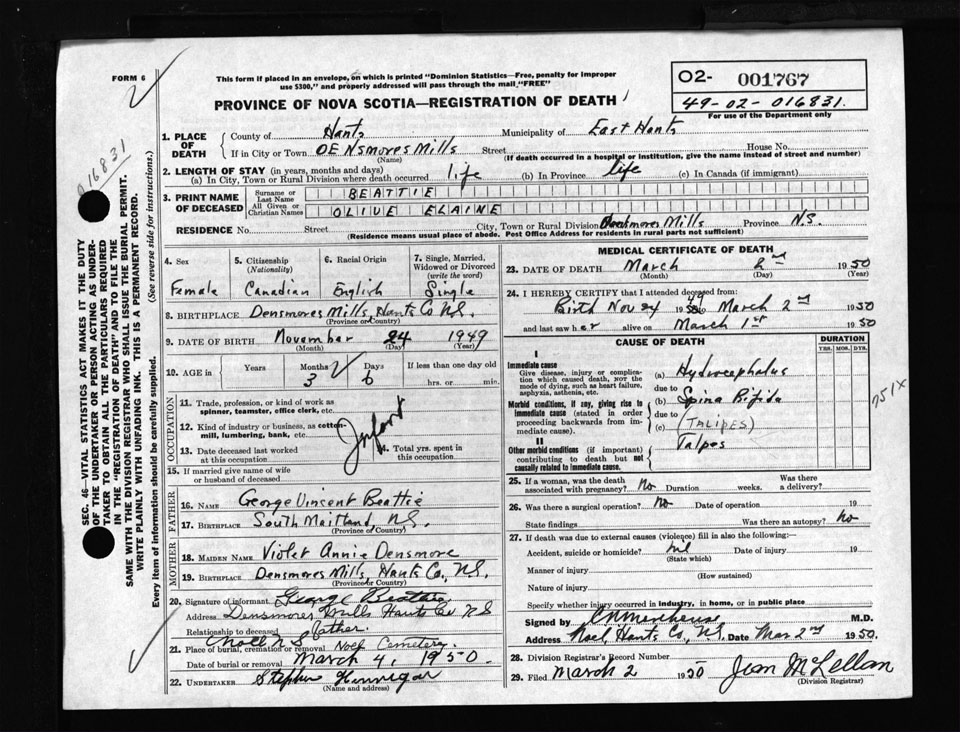 FORM 6
This form if placed in an envelope, on which is printed "Dominion Statistics—Free, penalty for improper
use $300," and properly addressed will pass through the mail "FREE"
O2- 001767
49-02-016831.
For use of the Department only
PROVINCE OF NOVA SCOTIA—REGISTRATION OF DEATH
016831
SEC. 46—VITAL STATISTICS ACT MAKES IT THE DUTY
OF THE UNDERTAKER OR PERSON ACTING AS UNDER-
TAKER TO OBTAIN ALL THE PARTICULARS REQUIRED
IN THE "REGISTRATION OF DEATH" AND TO FILE THE
SAME WITH THE DIVISION REGISTRAR WHO SHALL ISSUE THE BURIAL PERMIT.
WRITE PLAINLY WITH UNFADING INK. THIS IS A PERMANENT RECORD.
Every item of information should be carefully supplied. (See reverse side for instructions.)
1. PLACE OF DEATH
County of Hants Municipality of East Hants
If in City or Town DENsmores Mills Street House No.
(Name) (If death occurred in a hospital or institution, give the name instead of street and number)
2. LENGTH OF STAY (in years, months and days)
(a) In City, Town or Rural Division where death occurred life (b) In Province life (c) In Canada (if immigrant)
3. PRINT NAME OF DECEASED
Surname or Last Name BEATTIE
All Given or Christian Names OLIVE ELAINE
RESIDENCE No. Street City, Town or Rural Division Densmores Mills Province N.S.
(Residence means usual place of abode. Post Office Address for residents in rural parts not sufficient)
4. Sex 5. Citizenship (Nationality) 6. Racial Origin 7. Single, Married, Widowed or Divorced (write the word)
Female Canadian English Single
8. BIRTHPLACE Densmores Mills, Hants Co N.S.
(Province or Country)
9. DATE OF BIRTH November 24 1949
(Month) (Day) (Year)
10. AGE in Years Months Days If less than one day old
3 6 hrs. or min.
OCCUPATION
11. Trade, profession, or kind of work as
spinner, teamster, office clerk, etc.
12. Kind of industry or business, as cotton-
mill, lumbering, bank, etc.
Infant
13. Date deceased last worked
at this occupation
14. Total yrs. spent in
this occupation
15. If married give name of wife
or husband of deceased
FATHER
16. NAME George Vincent Beattie
17. BIRTHPLACE South Maitland, N.S.
(Province or Country)
MOTHER
18. MAIDEN NAME Violet Annie Densmore
19. BIRTHPLACE Densmores Mills, Hants Co., N.S.
(Province or Country)
20. Signature of informant George Beattie
Address Densmores Mills Hants Co N.S
Relationship to deceased father.
21. Place of burial, cremation or removal Noel N S Noel Cemetery.
Date of burial or removal March 4, 1950.
22. UNDERTAKER Stephen Hennigar
(Name and address)
MEDICAL CERTIFICATE OF DEATH
23. DATE OF DEATH March 2nd 1950
(Month) (Day) (Year)
24. I HEREBY CERTIFY that I attended deceased from:
Birth Nov 24 49 to March 2nd 1950
and last saw her alive on March 1st 1950
CAUSE OF DEATH
DURATION
YRS. MOS. DYS.
I
Immediate cause
Give disease, injury or complica-
tion which caused death, nor the
mode of dying, such as heart failure,
asphyxia, asthenia, etc.
(a) Hydrocephalus
due to
Morbid conditions, if any, giving rise to
immediate cause (stated in order
proceeding backwards from im-
mediate cause).
(b) Spina Bifida
due to
(c) (TALIPES)
II
Other morbid conditions (if important)
contributing to death but not
causally related to immediate cause.
Talpes
751X
25. If a woman, was the death
associated with pregnancy? No Duration weeks. Was there
a delivery?
26. Was there a surgical operation? No Date of operation 19
State findings Was there an autopsy? No
27. If death was due to external causes (violence) fill in also the following:—
Accident, suicide or homicide? nil Date of injury 19
(State which)
Manner of injury
(How sustained)
Nature of injury
Specify whether injury occurred in industry, in home, or in public place
Signed by M.D.
Address Noel, Hants Co, N.S. Date Mar 2nd 1950.
28. Division Registrar's Record Number
29. Filed March 2 1950 Jean McLellan
(Division Registrar)